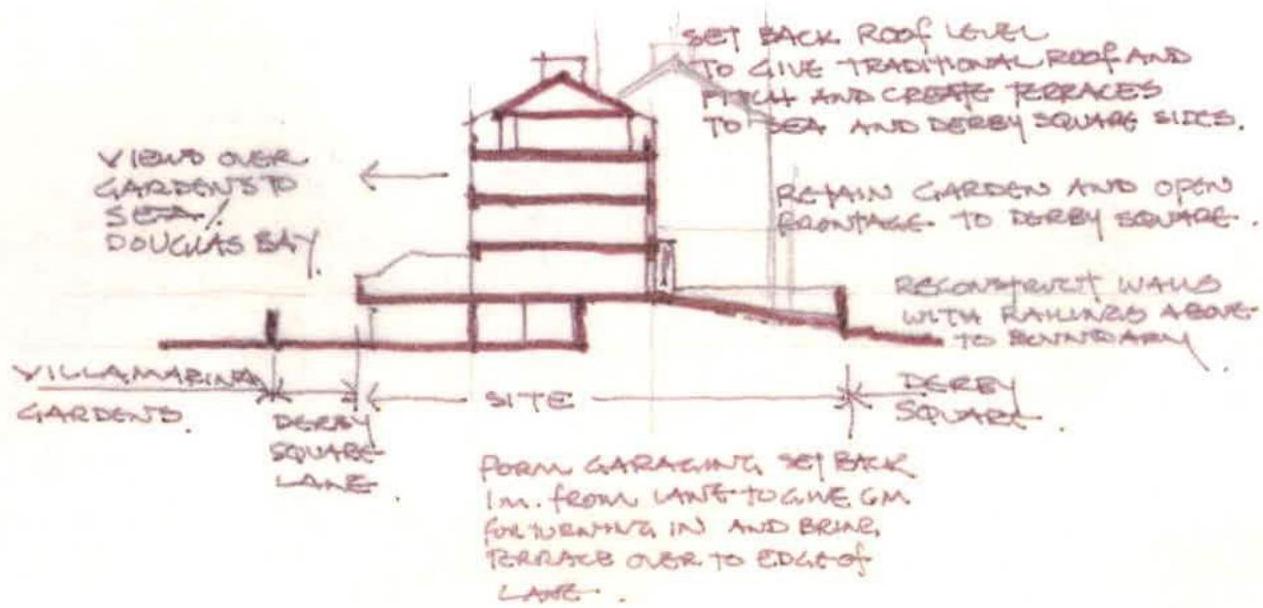 SET BACK ROOF LEVEL
TO GIVE TRADITIONAL ROOF AND
PITCH AND CREATE TERRACES
TO SEA AND DERBY SQUARE SIDES.
VIEWS OVER
GARDENS TO
SEA/
DOUGLAS BAY.
RETAIN GARDEN AND OPEN
FRONTAGE TO DERBY SQUARE.
RECONSTRUCT WALLS
WITH RAILINGS ABOVE
TO BOUNDARY
VILLA MARINA
GARDENS.
DERBY
SQUARE
LANE.
SITE
DERBY
SQUARE.
FORM GARAGING, SET BACK
1M. FROM LANE TO GIVE 6M.
FOR TURNING IN AND BRING
TERRACE OVER TO EDGE OF
LANE.